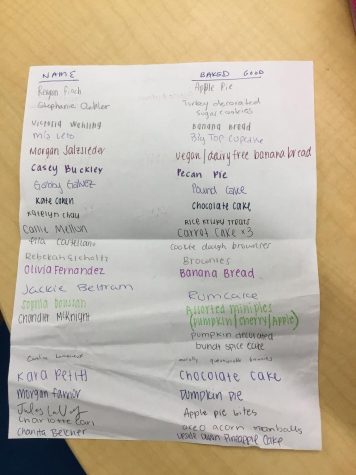 NAME BAKED GOOD
Regan Apple Pie
Stephanie Turkey decorated
sugar cookies
Victoria Banana Bread
Big Top Cupcake
Morgan Salzsieder vegan/dairy free banana bread
Casey Buckler Pecan Pie
Gabby Galvez Pound Cake
Kate Cohen Chocolate Cake
Katelyn Chau Rice Krispy Treats
Callie Mellon Carrot Cake x3
Ella Castellano Cookie dough brownies
Rebekah Brownies
Olivia Fernandez Banana Bread
Jackie Beltram Rumcake
Sophia Assorted minipies
(pumpkin/cherry/Apple)
Chandler McKnight pumpkin decorated
bundt spice cake
Kara Petitt Chocolate Cake
Morgan Farrior Pumpkin Pie
Jules Apple Pie bites
Charlotte Carl acorn
Charita Belcher Upside Down Pineapple Cake